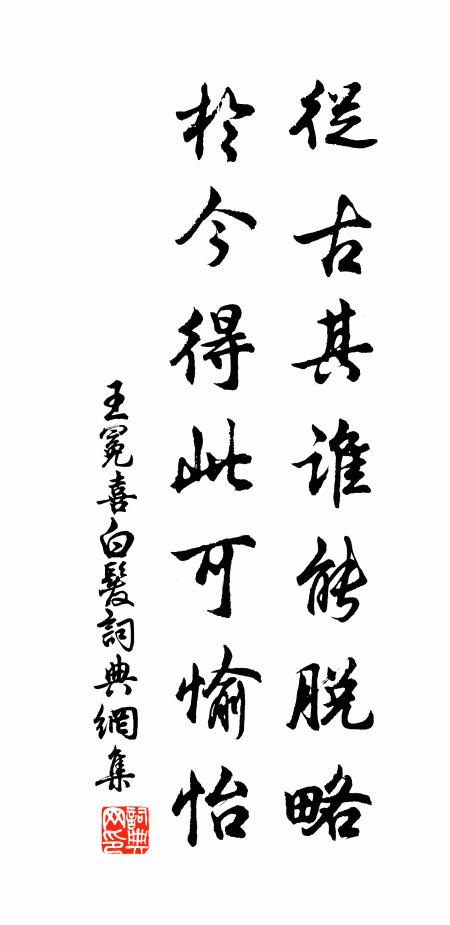 從古其誰能脱略
於今得此可愉怡
王冕喜白髮詞典網集
詞典网印